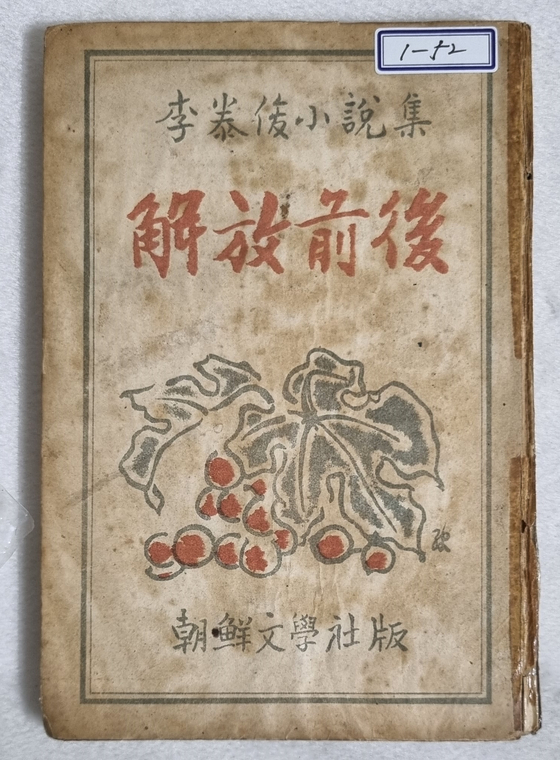 1-52
李泰俊小說集
解放前後
朝鮮文學社版